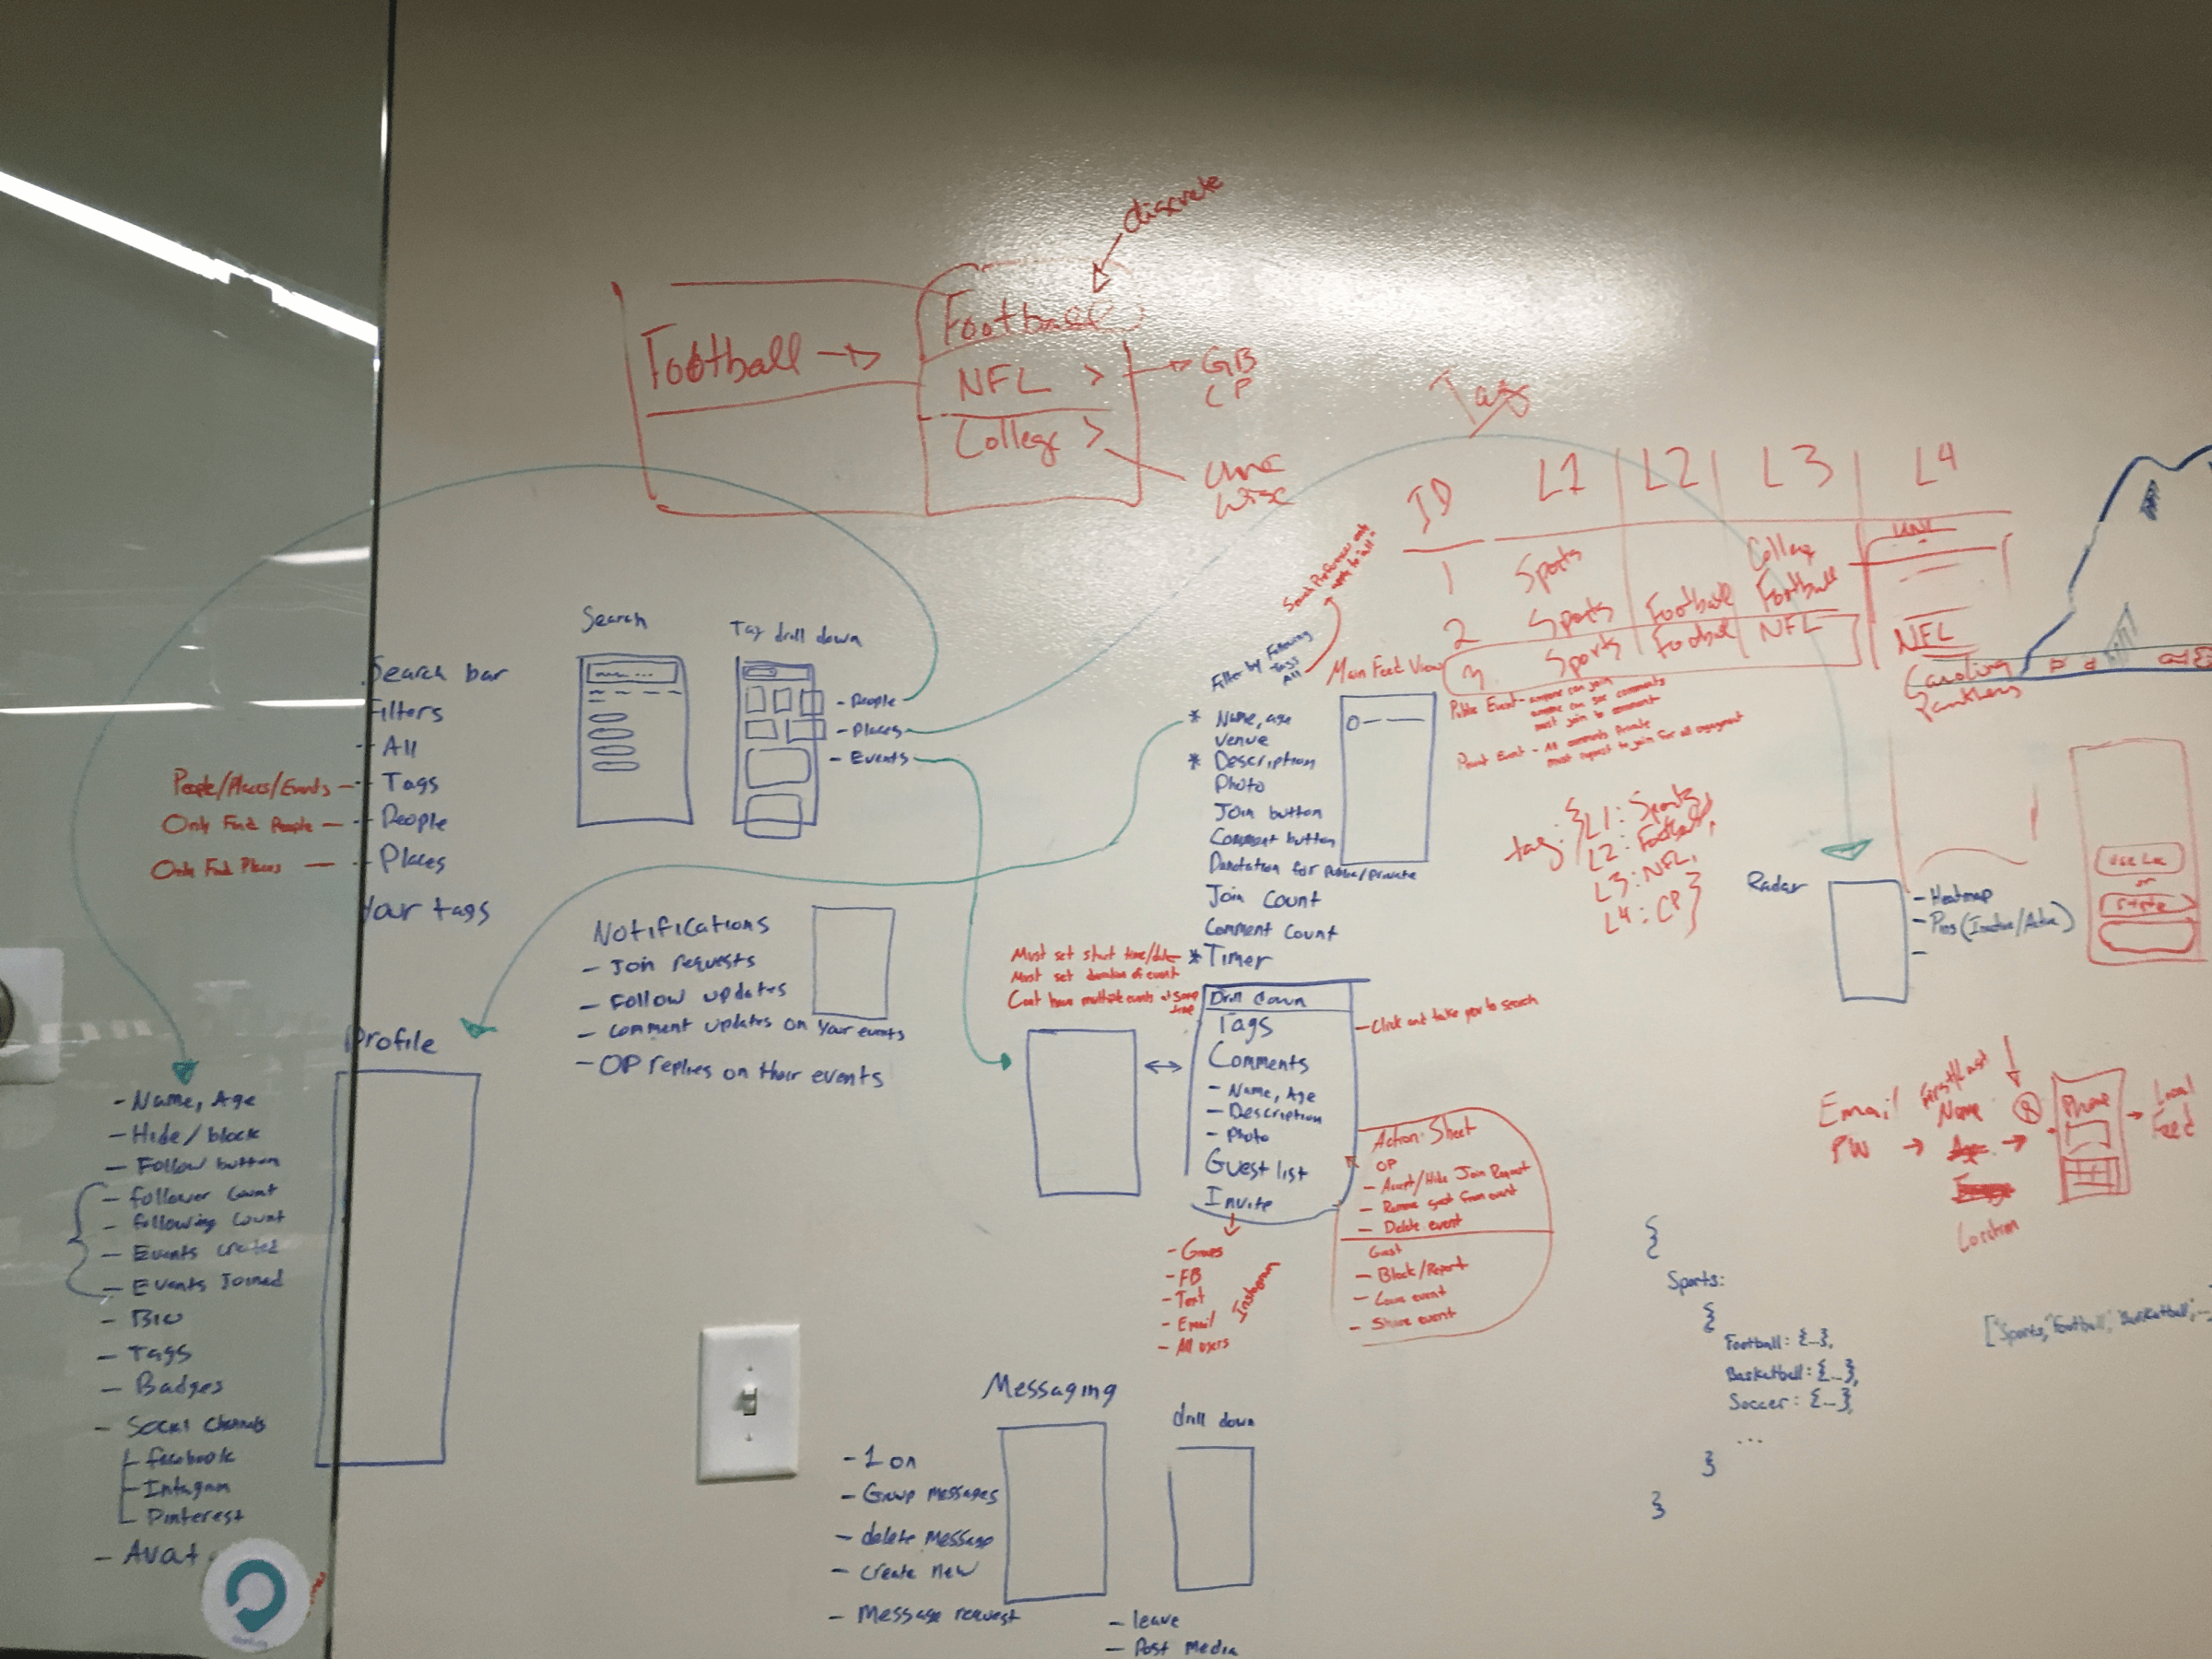 discrete
Football →
Football
NFL >
College >
GB
CP
UNC
Wisc
Tags
ID L1 L2 L3 L4
1 Sports
2 Sports Football College Football
3 Sports Football NFL
UNC
NFL
Carolina
Panthers
Search Preferences only
apply to "all"
Filter by Following
Tags
All
Search
Search bar
Filters
- All
- Tags
- People
- Places
Your tags
People/Places/Events -
Only Find People -
Only Find Places -
Tag drill down
- People
- Places
- Events
Main Feed View
* Name, age
Venue
* Description
Photo
Join button
Comment button
Danotation for public/private
Join Count
Comment Count
* Timer
Public Event - anyone can join
anyone can see comments
must join to comment
Privat Event - All comments Private
must request to join for all engagement
Must set start time/date
Must set duration of event
Cant have multiple events at same
time
Drill down
Tags
Comments
- Name, Age
- Description
- Photo
Guest list
Invite
- Click and take you to search
- FB
- Text
- Email
- All users
Action Sheet
OP
- Accept/Hide Join Request
- Remove guest from event
- Delete event
Guest
- Block/Report
- Leave event
- Share event
tag: {L1: Sports,
L2: Football,
L3: NFL,
L4: CP}
Radar
- Heatmap
- Pins (Inactive/Active)
or
Notifications
- Join requests
- Follow updates
- Comment updates on your events
- OP replies on their events
Profile
- Name, Age
- Hide/block
- Follow button
- follower Count
- following Count
- Events created
- Events Joined
- Bio
- Tags
- Badges
- Social Channels
- facebook
- Intagram
- Pinterest
- Avat
Messaging
- 1 on
- Group messages
- delete message
- create new
- Message request
drill down
- leave
- Post media
Email
PW →
First/Last
Name
Age
Location
Phone
→ Local
Feed
{
Sports:
{
Football: {...},
Basketball: {...},
Soccer: {...},
...
}
}
["Sports," "Football," "Basketball," ...